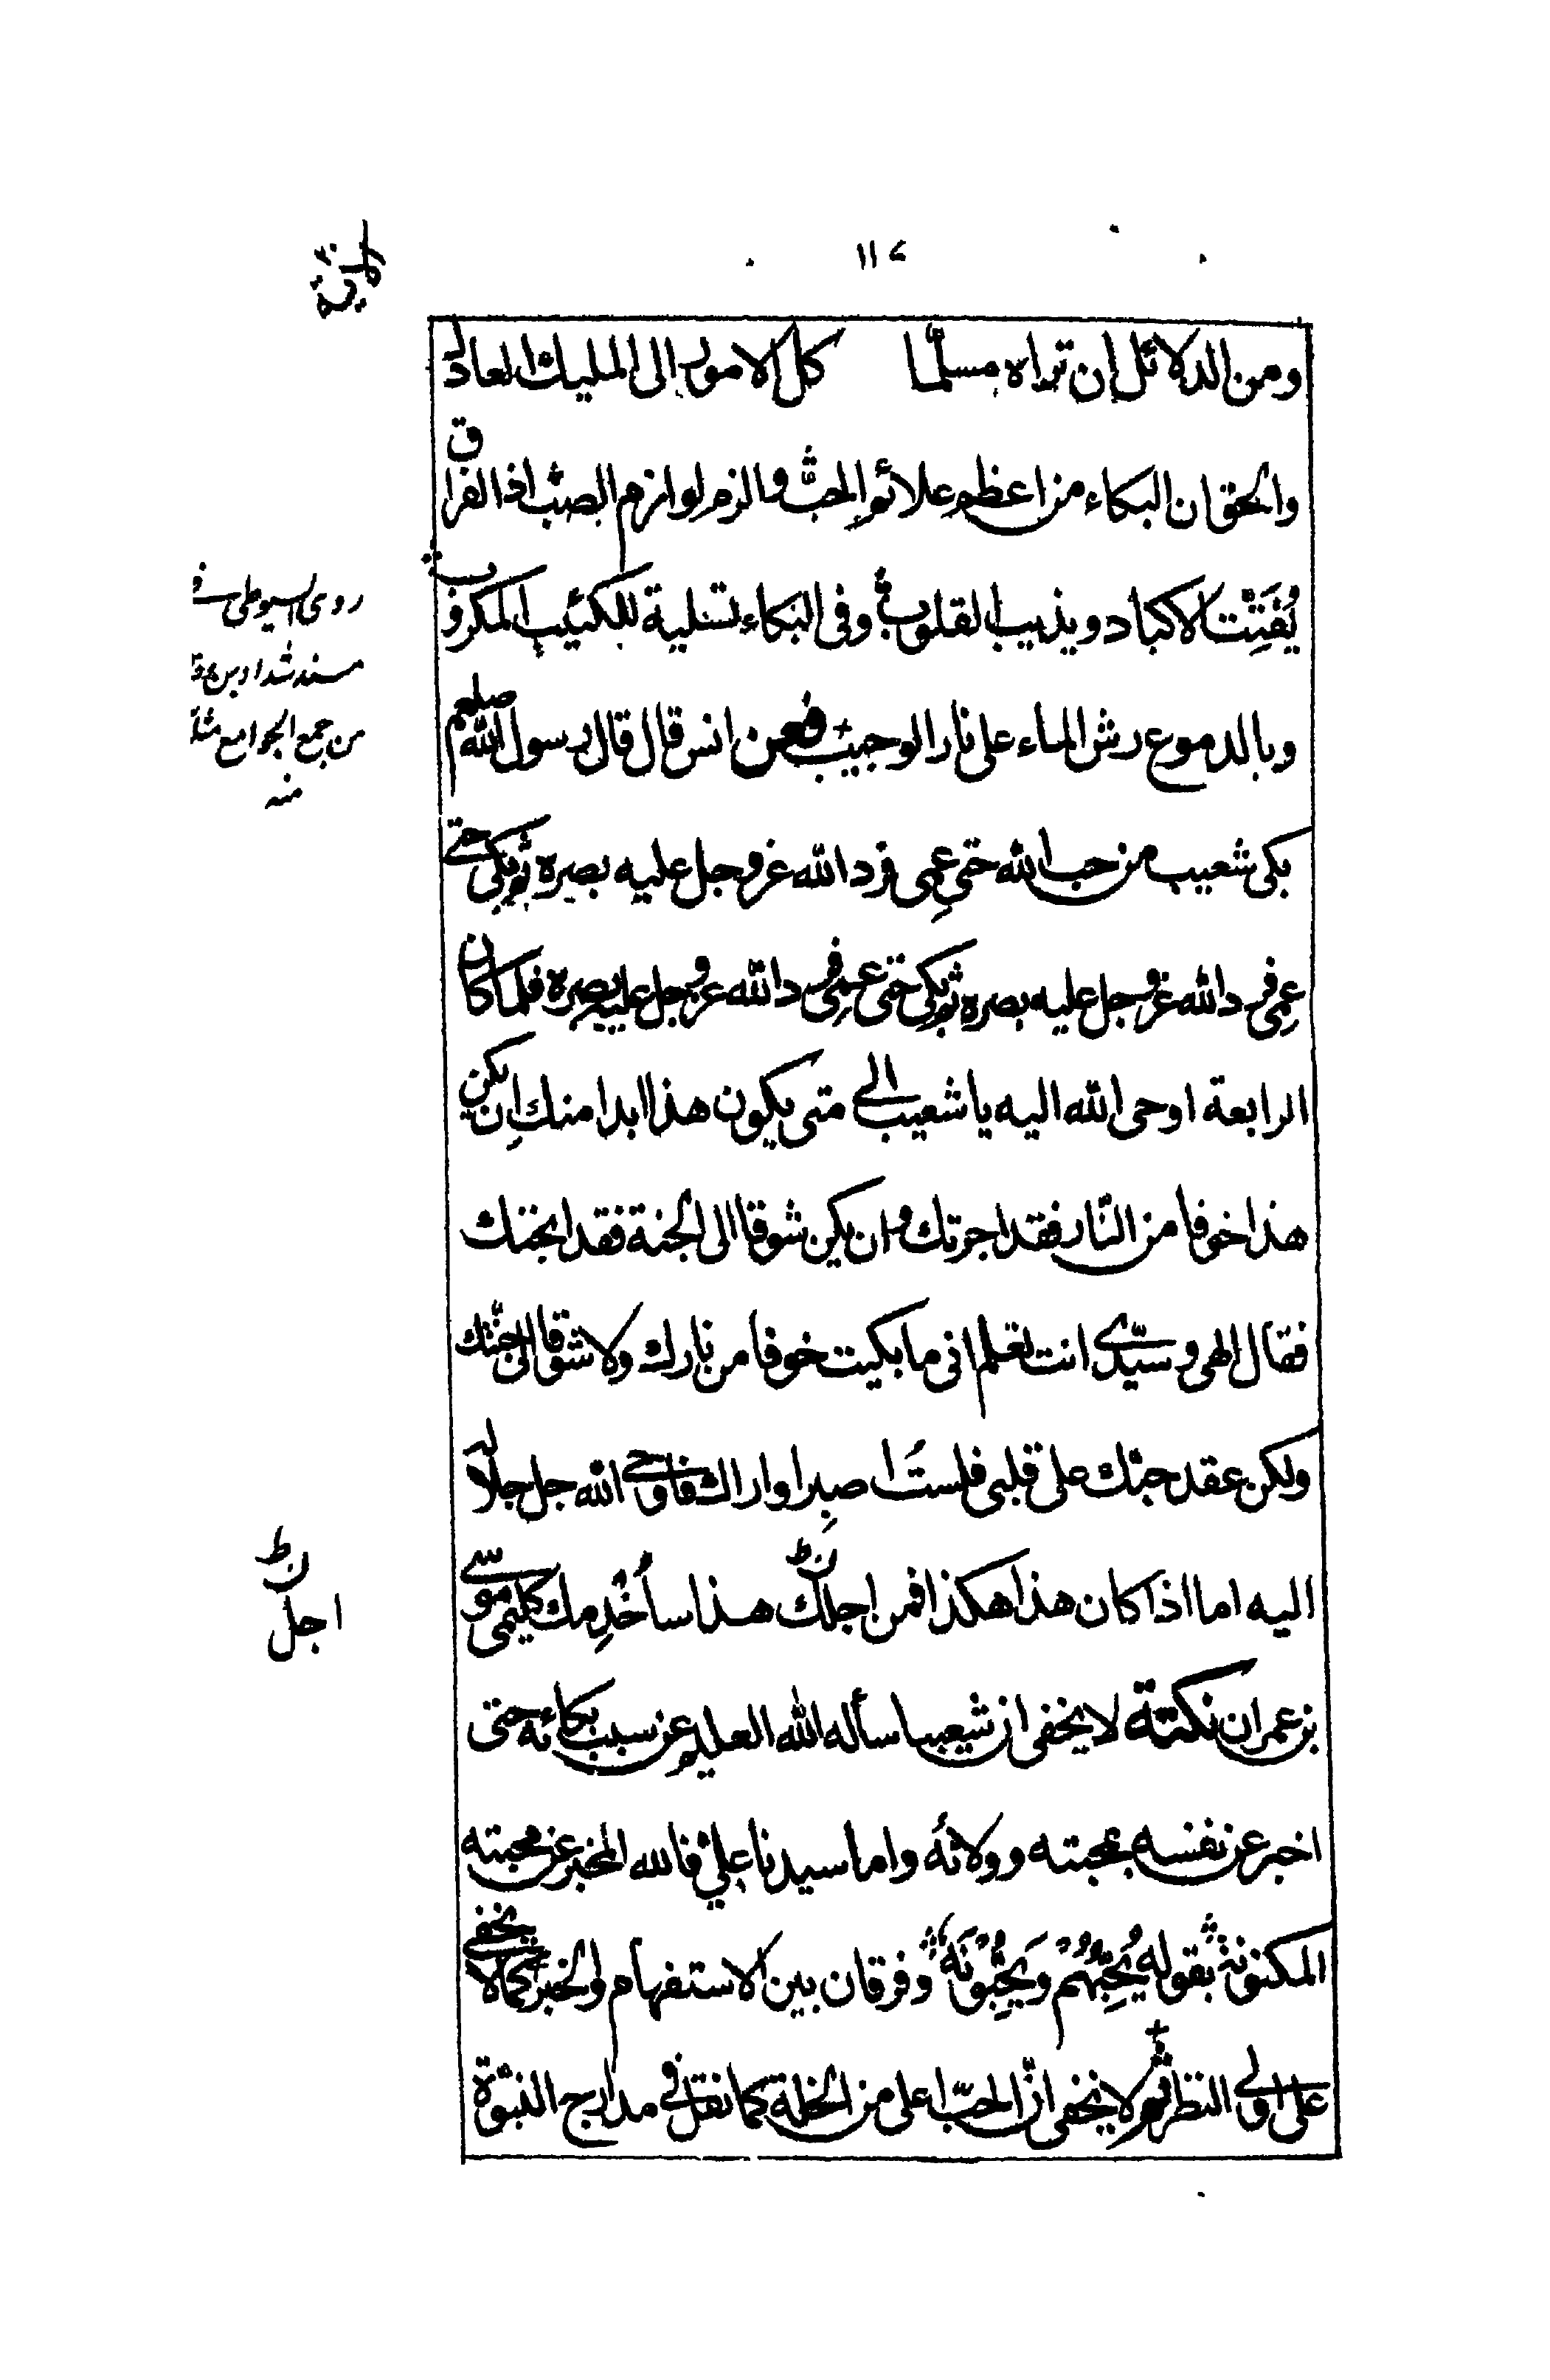 ١١٧
ومن الدلائل ان تراه مسلّما كل الامور الى المليك العادل
والحق ان البكاء من اعظم علائم المحبّ والزم لوازم الصبّ اذ الفراق
يُفَتِّت الاكباد ويذيب القلوب وفى البكاء تسلية للكئيب المكروب
وبالدموع رش الماء على نار الوجيب فعن انس قال قال رسول الله صلعم
بكى شعيب من حب الله حتى عمِى فرد الله عز وجل عليه بصره ثم بكى حتى
عمِى فرد الله عز وجل عليه بصره ثم بكى حتى عمِى فرد الله عز وجل عليه بصره فلما كان
الرابعة اوحى الله اليه يا شعيب الى متى يكون هذا ابدا منك اِن يكن
هذا خوفا من النّار فقد اجرتك وان يكن شوقا الى الجنة فقد ابحتك
فقال الهى وسيّدى انت تعلم انى ما بكيت خوفا من نارك ولا شوقا الى جنّتك
ولكن عقد حبّك على قلبى فلستُ اصبِر او اراك فاوحى الله جل جلاله
اليه اما اذا كان هذا هكذا فمن اجلك هذا سأُخْدِمك كليمى موسى
بن عمران نكتة لا يخفى ان شعيبا سأله الله العليم عن سبب بكائه حتى
اخبر عن نفسه بمحبته وولائه واما سيدنا علىّ فالله المخبر عن محبته
المكنونة بقوله يُحِبُّهُمْ وَيُحِبُّونَهُ وفرقان بين الاستفهام والخبر كما لا يخفى
على اولى النظر ثم لا يخفى انّ الحبّ اعلى من الخلة كما نقل فى مدارج النبوّة
روى السيوطى فى
مسند شداد بن
من جمع الجوامع
منه
ن
اجل